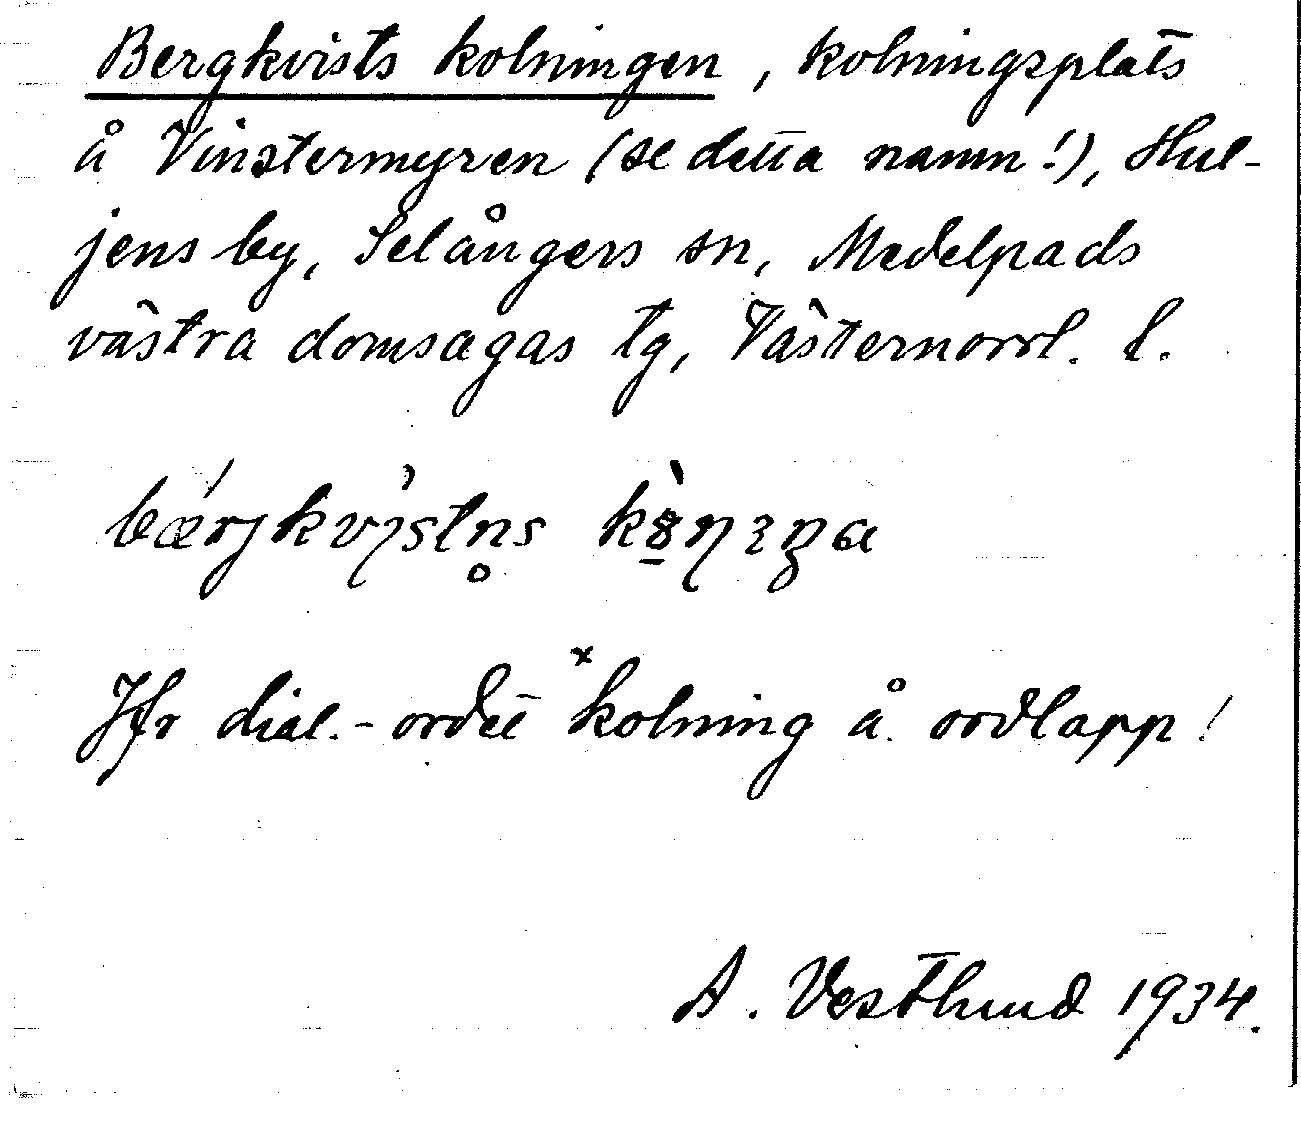 Bergkvists kolningen, kolningsplats
å Vinstermyren (se detta namn!), Hul-
jens by, Selångers sn, Medelpads
västra domsagas tg, Västernorrl. l.
Jfr dial.-ordet ˣkolning å ordlapp!
A. Vestlund 1934.